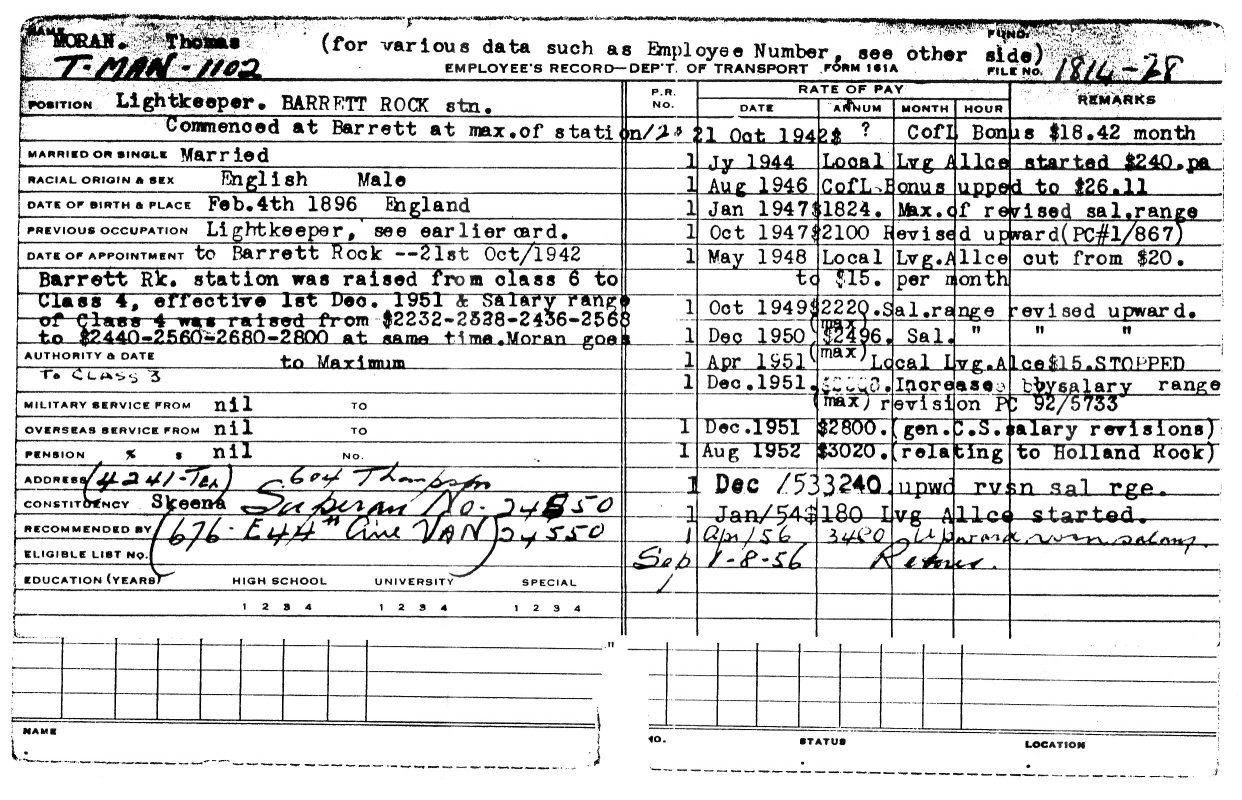 NAME MORAN. Thomas (for various data such as Employee Number, see other side) FUND.
T-MAN-1102 EMPLOYEE'S RECORD—DEP'T. OF TRANSPORT FORM 161A FILE NO. 1814-28
POSITION Lightkeeper. BARRETT ROCK stn. P.R. NO. RATE OF PAY REMARKS
DATE ANNUM MONTH HOUR
Commenced at Barrett at max.of station 21 Oct 1942$ ? CofL Bonus $18.42 month
MARRIED OR SINGLE Married 1 Jy 1944 Local Lvg Allce started $240.pa
RACIAL ORIGIN & SEX English Male 1 Aug 1946 CofL Bonus upped to $26.11
DATE OF BIRTH & PLACE Feb.4th 1896 England 1 Jan 1947$1824. Max.of revised sal.range
PREVIOUS OCCUPATION Lightkeeper, see earlier card. 1 Oct 1947$2100 Revised upward(PC#1/867)
DATE OF APPOINTMENT to Barrett Rock --21st Oct/1942 1 May 1948 Local Lvg.Allce cut from $20.
Barrett Rk. station was raised from class 6 to to $15. per month
Class 4, effective 1st Dec. 1951 & Salary range 1 Oct 1949$2220.Sal.range revised upward.
of Class 4 was raised from $2232-2328-2436-2568 (max)
to $2440-2560-2680-2800 at same time.Moran goes 1 Dec 1950 $2496. Sal. " " "
AUTHORITY & DATE to Maximum 1 Apr 1951 (max) Local Lvg.Alce$15.STOPPED
TO CLASS 3 1 Dec.1951. Increase by salary range
MILITARY SERVICE FROM nil TO (max) revision PC 92/5733
OVERSEAS SERVICE FROM nil TO 1 Dec.1951 $2800.(gen.C.S.salary revisions)
PENSION % $ nil NO. 1 Aug 1952 $3020.(relating to Holland Rock)
ADDRESS (4241-Tex) 604 Thompson 1 Dec /53 3240.upwd rvsn sal rge.
CONSTITUENCY Skeena Superan No. 24550 1 Jan/54$180 Lvg Allce started.
RECOMMENDED BY (676-E44th Ave VAN) 24550 1 Apr/56 3480 Upward rvsn salary.
ELIGIBLE LIST NO. Sep 1-8-56 Retires.
EDUCATION (YEARS) HIGH SCHOOL UNIVERSITY SPECIAL
1 2 3 4 1 2 3 4 1 2 3 4
NAME NO. STATUS LOCATION